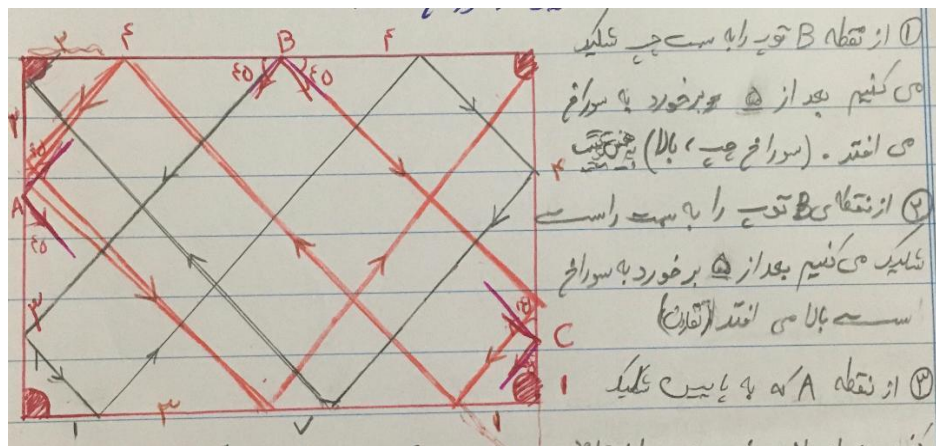 ① از نقطه B توپ را به سمت چپ شلیک
می کنیم بعد از ۵ برخورد به سوراخ
می افتد. (سوراخ چپ، بالا)
② از نقطه‌ی B توپ را به سمت راست
شلیک می کنیم بعد از ۵ برخورد به سوراخ
سمت بالا می افتد (تقارن)
③ از نقطه A که به پایین شلیک
۲
۴
B
۴
۴۵
۴۵
۳
۴۵
A
۴۵
۴
۳
۴۵
C
۱
۱
۱
۳
۷
۱